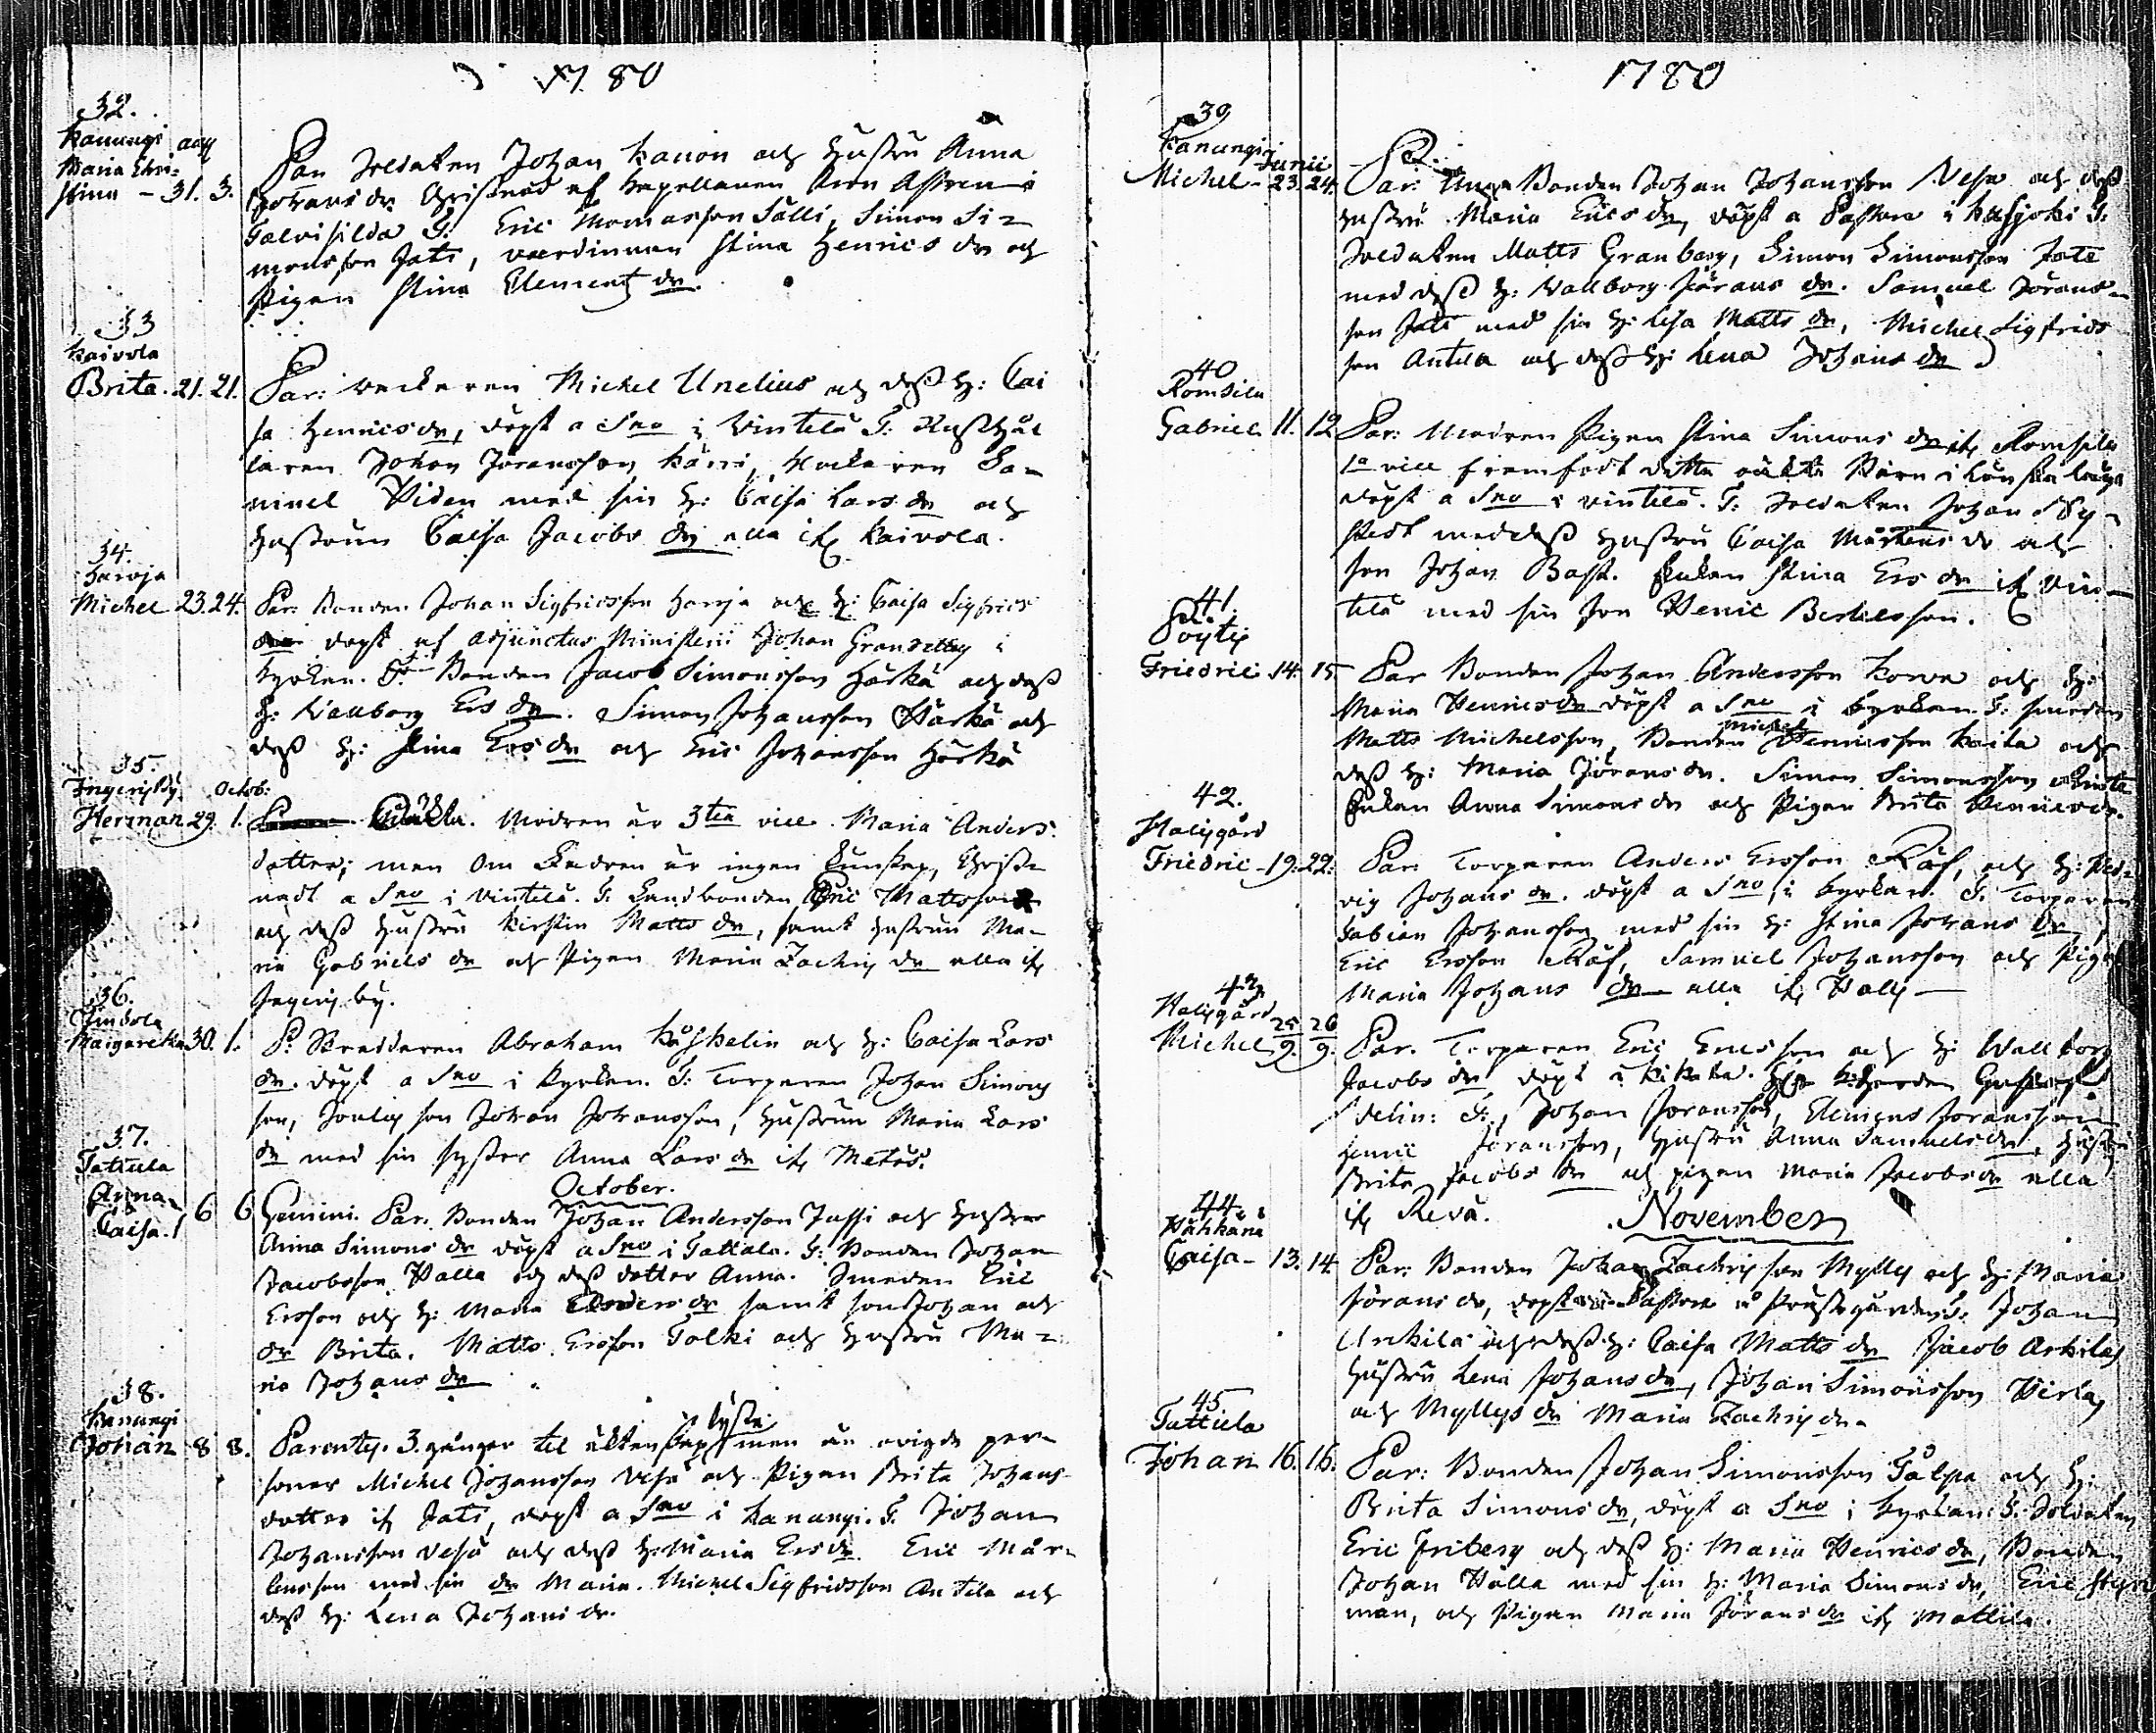 1780
32.
Kanungi aug
Maria Chri-
stina - 31. 3.
Par Soldaten Johan Kanon och hustru Anna
Johans dr Christnad af Capellanen
Eric Thomasson Sälli, Simon Si-
monsson Jati, värdinnan Stina Henrics dr och
Pigan Stina Clements dr.
33
Kaivola
Brita. 21. 21.
Par: Michel Unelius och dess h: Cai
sa Henrics dr, döpt a Sno i Vintela T:
laren Johan Jöransson Kärri, Sa-
muel Widen med sin h: Caisa Lars dr och
hustrun Caisa Jacobs dr alla if. Kaivola.
34.
Haroja
Michel 23. 24.
Par: Bonden Johan Sigfridsson Haroja och h: Caisa Sigfrids
dr döpt af adjunctus Ministerii Johan Grandelley i
kyrkan. T: Bonden Jacob Simonsson Härkä och dess
h: Wallborg Ers dr. Simon Johansson Härkä och
dess h: Stina Ers dr och Eric Johansson Härkä
35.
Ingerisby Octob:
Herman 29. 1.
Oäckta. Modren är 3tie vice Maria Anders
dotter; men om Fadren är ingen kunskap, Christ-
nadt a Sno i Vintelä. T: Landbonden Eric Mattsson
och dess hustru Kirstin Matts dr, samt hustrun Ma-
ria Gabriels dr och Pigan Maria Zachris dr alla if.
Ingeris by.
36.
Jindola
Margareta 30. 1.
P: Abraham och h: Caisa Lars
dr. döpt a Sno i kyrkan. T: Torparen Johan Simons
son, son Johan Johansson, hustrun Maria Lars
dr med sin syster Anna Lars dr if. Metus.
October.
37.
Tattula
Anna
Caisa. 6 6
Gemini. Par. Bonden Johan Andersson Jussi och hustru
Anna Simons dr döpt a Sno i Tattala. T: Bonden Johan
Jacobsson Halla och dess dotter Anna. Smeden Eric
Ersson och h: Maria Anders dr samt son Johan och
dr Brita. Matts Ersson Tolki och hustru Ma-
ria Johans dr
38.
Kanungi
Johan 8 8.
Parentes. 3. gånger til äktenskap lyste men än ovigde per-
soner Michel Johansson Vesa och Pigan Brita Johans
dotter if Jati, döpt a Sno i Kanungi. T. Johan
Johansson Vesa och dess h: Maria Ers dr. Eric Mår-
tensson med sin dr Maria. Michel Sigfridsson Antila och
dess h: Lena Johans dr.
1780
39
Kanungi Junii
Michel - 23. 24.
Par: Unga Bonden Johan Johansson Vesa och dess
hustru Maria Erics dr, döpt a Pastore i T:
Soldaten Matts Granberg, Simon Simonsson Jati
med dess h: Wallborg Jörans dr. Samuel Jörans-
son Jati med sin h: Lisa Matts dr, Michel Sigfrids
son Antila och dess h: Lena Johans dr
40
Romsila
Gabriel 11. 12
Par: Modren Pigan Stina Simons dr if. Romsila
1a vice framfödt detta oäckta Barn i
döpt a Sno i Vintelä. T: Soldaten Johan
med dess hustru Caisa Mårtens dr och
son Johan Bask. Enkan Stina Ers dr if Vin-
telä med sin son Henric Bertelsson.
41.
Pöytis
Friedric 14. 15.
Par Bonden Johan Andersson Korva och h:
Maria Henrics dr döpt a Sno i kyrkan T: smeden
Matts Michelsson, Bonden Michel Henricsson Kaita och
dess h: Maria Jörans dr. Simon Simonsson
Enkan Anna Simons dr och Pigan Brita Henrics dr.
42.
Halisgård
Friedric - 19. 22.
Par: Torparen Anders Ersson Räf, och h: Hed-
vig Johans dr. döpt a Sno, i kyrkan. T. Torparen
Fabian Johansson med sin h: Stina Johans dr
Eric Ersson Räf, Samuel Johansson och Pigan
Maria Johans dr alla if Halis
43
Halisgård 25 26
Michel 9. 9.
Par. Torparen Eric Ericsson och h: Wallborg
Jacobs dr döpt i
T:, Johan Jöransson, Clemens Jöransson
Henric Jöransson, hustru Anna Samuels dr, hustru
Brita Jacobs dr och pigan Maria Jacobs dr alla
if Revä.
November
44.
Hähkänä
Caisa - 13. 14.
Par: Bonden Johan Zachrisson Mylly och h: Maria
Jörans dr, döpt a Pastore i Prästgården T. Johan
Arkila och dess h: Caisa Matts dr Jacob Arkilas
hustru Lena Johans dr, Johan Simonsson Hirla
och Myllys dr Maria Zachris dr.
45
Tattula
Johan 16. 16.
Par: Bonden Johan Simonsson Talpa och h:
Brita Simons dr, döpt a Sno i kyrkan T: Soldaten
Eric Friberg och dess h: Maria Henrics dr, Bonden
Johan Halla med sin h: Maria Simons dr, Eric Styr
man, och Pigan Maria Jörans dr if Mattila.